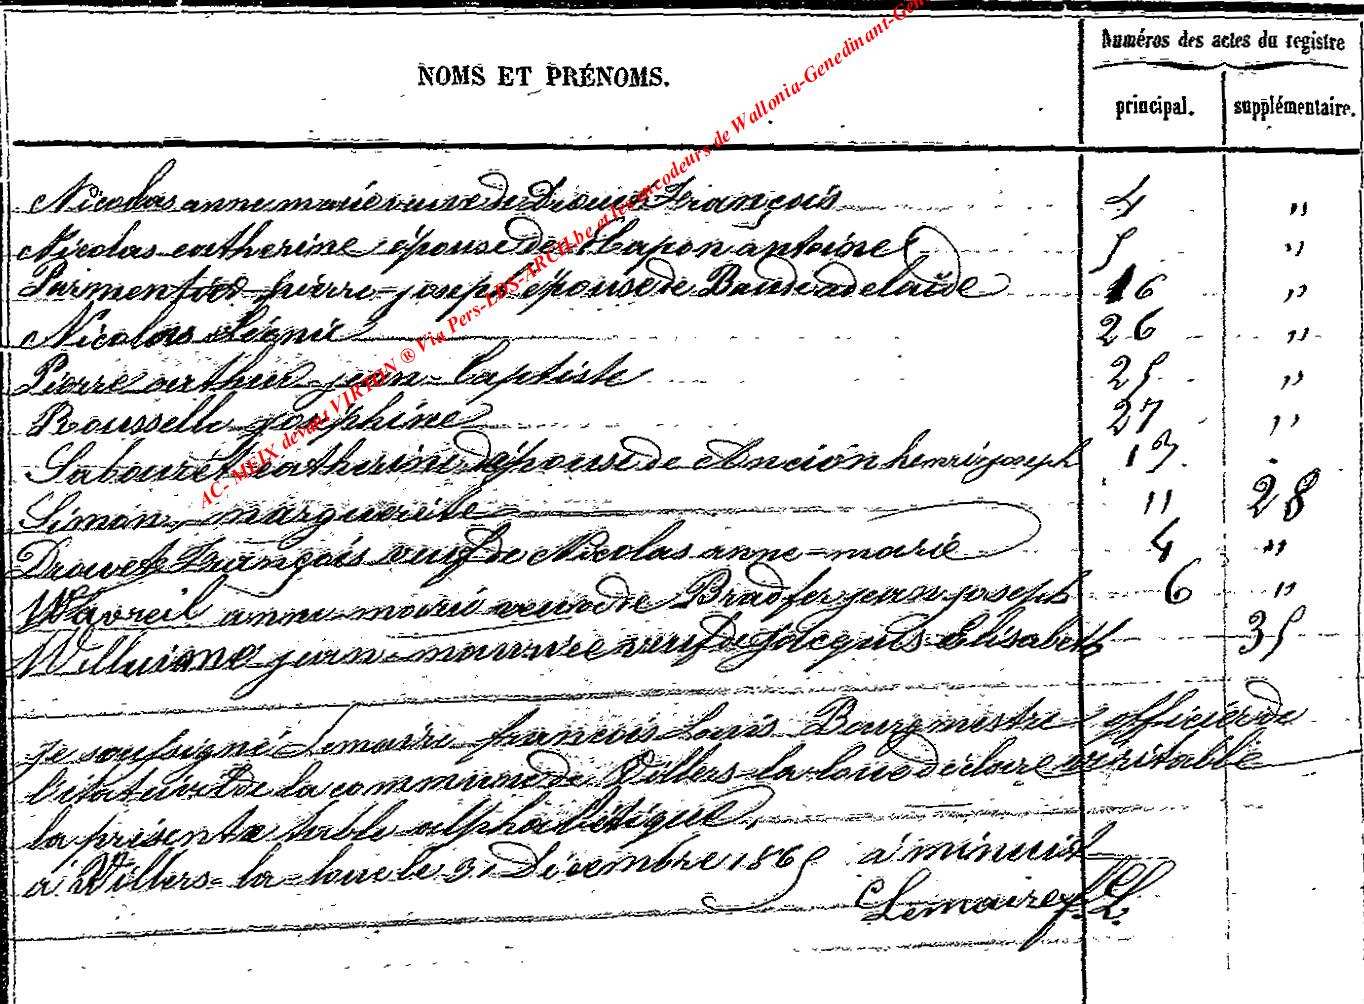 Numéros des actes du registre
NOMS ET PRÉNOMS.
principal. supplémentaire.
AC- MEIX devant VIRTON ® Via Pers-LDS-ARCH.be et les encodeurs de Wallonia-Genedinant-Gen
Nicolas anne marie veuve de Drouet François 4 "
Nicolas catherine épouse de Hapon antoine 5 "
Parmentier pierre-joseph épouse de Baudon adelaïde 16 "
Nicolas Léonie 26 "
Pierre arthur jean-Baptiste 25 "
Rousselle joséphine 27 "
Sabouret catherine épouse de Ancion henri joseph 13
Simon, marguerite " 28
Drouet François veuf de Nicolas anne-marie 4 "
Wavreil anne marie veuve de Bradfer jean joseph 6 "
Willaime jean-maurice veuf de Jacques Elisabeth 35
je soussigné Lemaire françois Louis Bourgmestre officier de
l'état civil de la commune de Villers-la-loue déclare véritable
la présente table alphabétique,
à Villers-la-loue le 31 Décembre 1865 à minuit
Lemaire f. L.